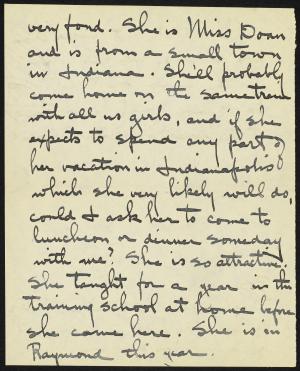 very fond. She is Miss Doan
and is from a small town
in Indiana. She'll probably
come home on the same train
with all us girls, and if she
expects to spend any part of
her vacation in Indianapolis
which she very likely will do,
could I ask her to come to
luncheon or dinner someday
with me? She is so attractive.
She taught for a year in the
training school at home before
she came here. She is in
Raymond this year.